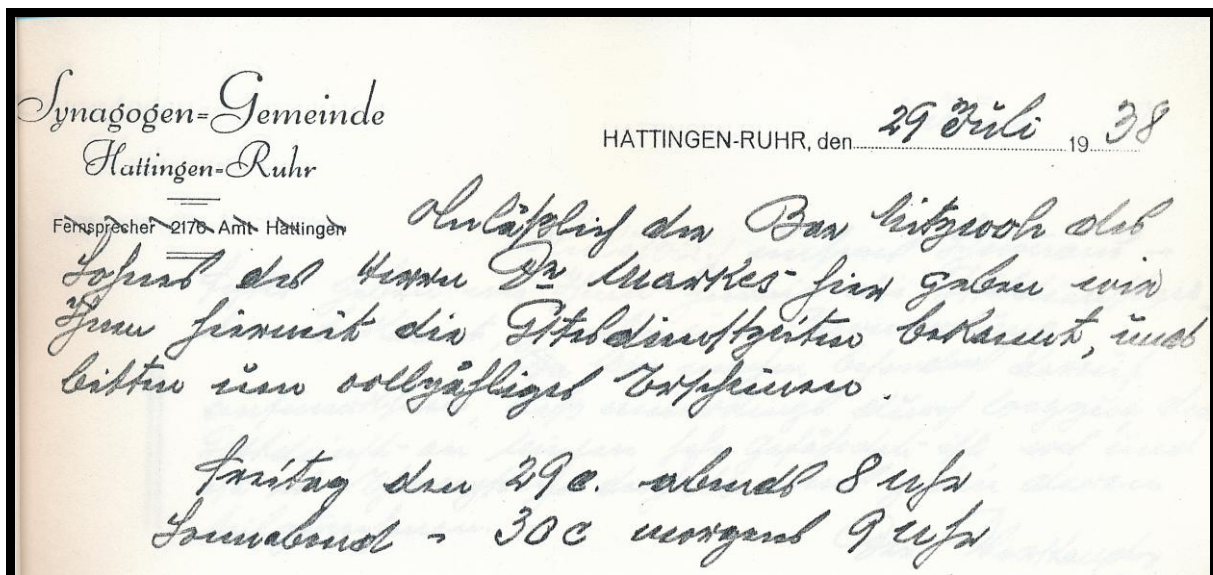 Synagogen=Gemeinde
Hattingen=Ruhr
Fernsprecher 2176 Amt Hattingen
HATTINGEN-RUHR, den 29 Juli 1938
Anläßlich der Bar Mitzwoh des
Sohnes des Herrn Dr Markes hier geben wir
Ihnen hiermit die Gttesdienstzeiten bekannt, und
bitten um vollzähliges Erscheinen.
Freitag den 29 c. abends 8 Uhr
Sonnabend - 30 c morgens 9 Uhr